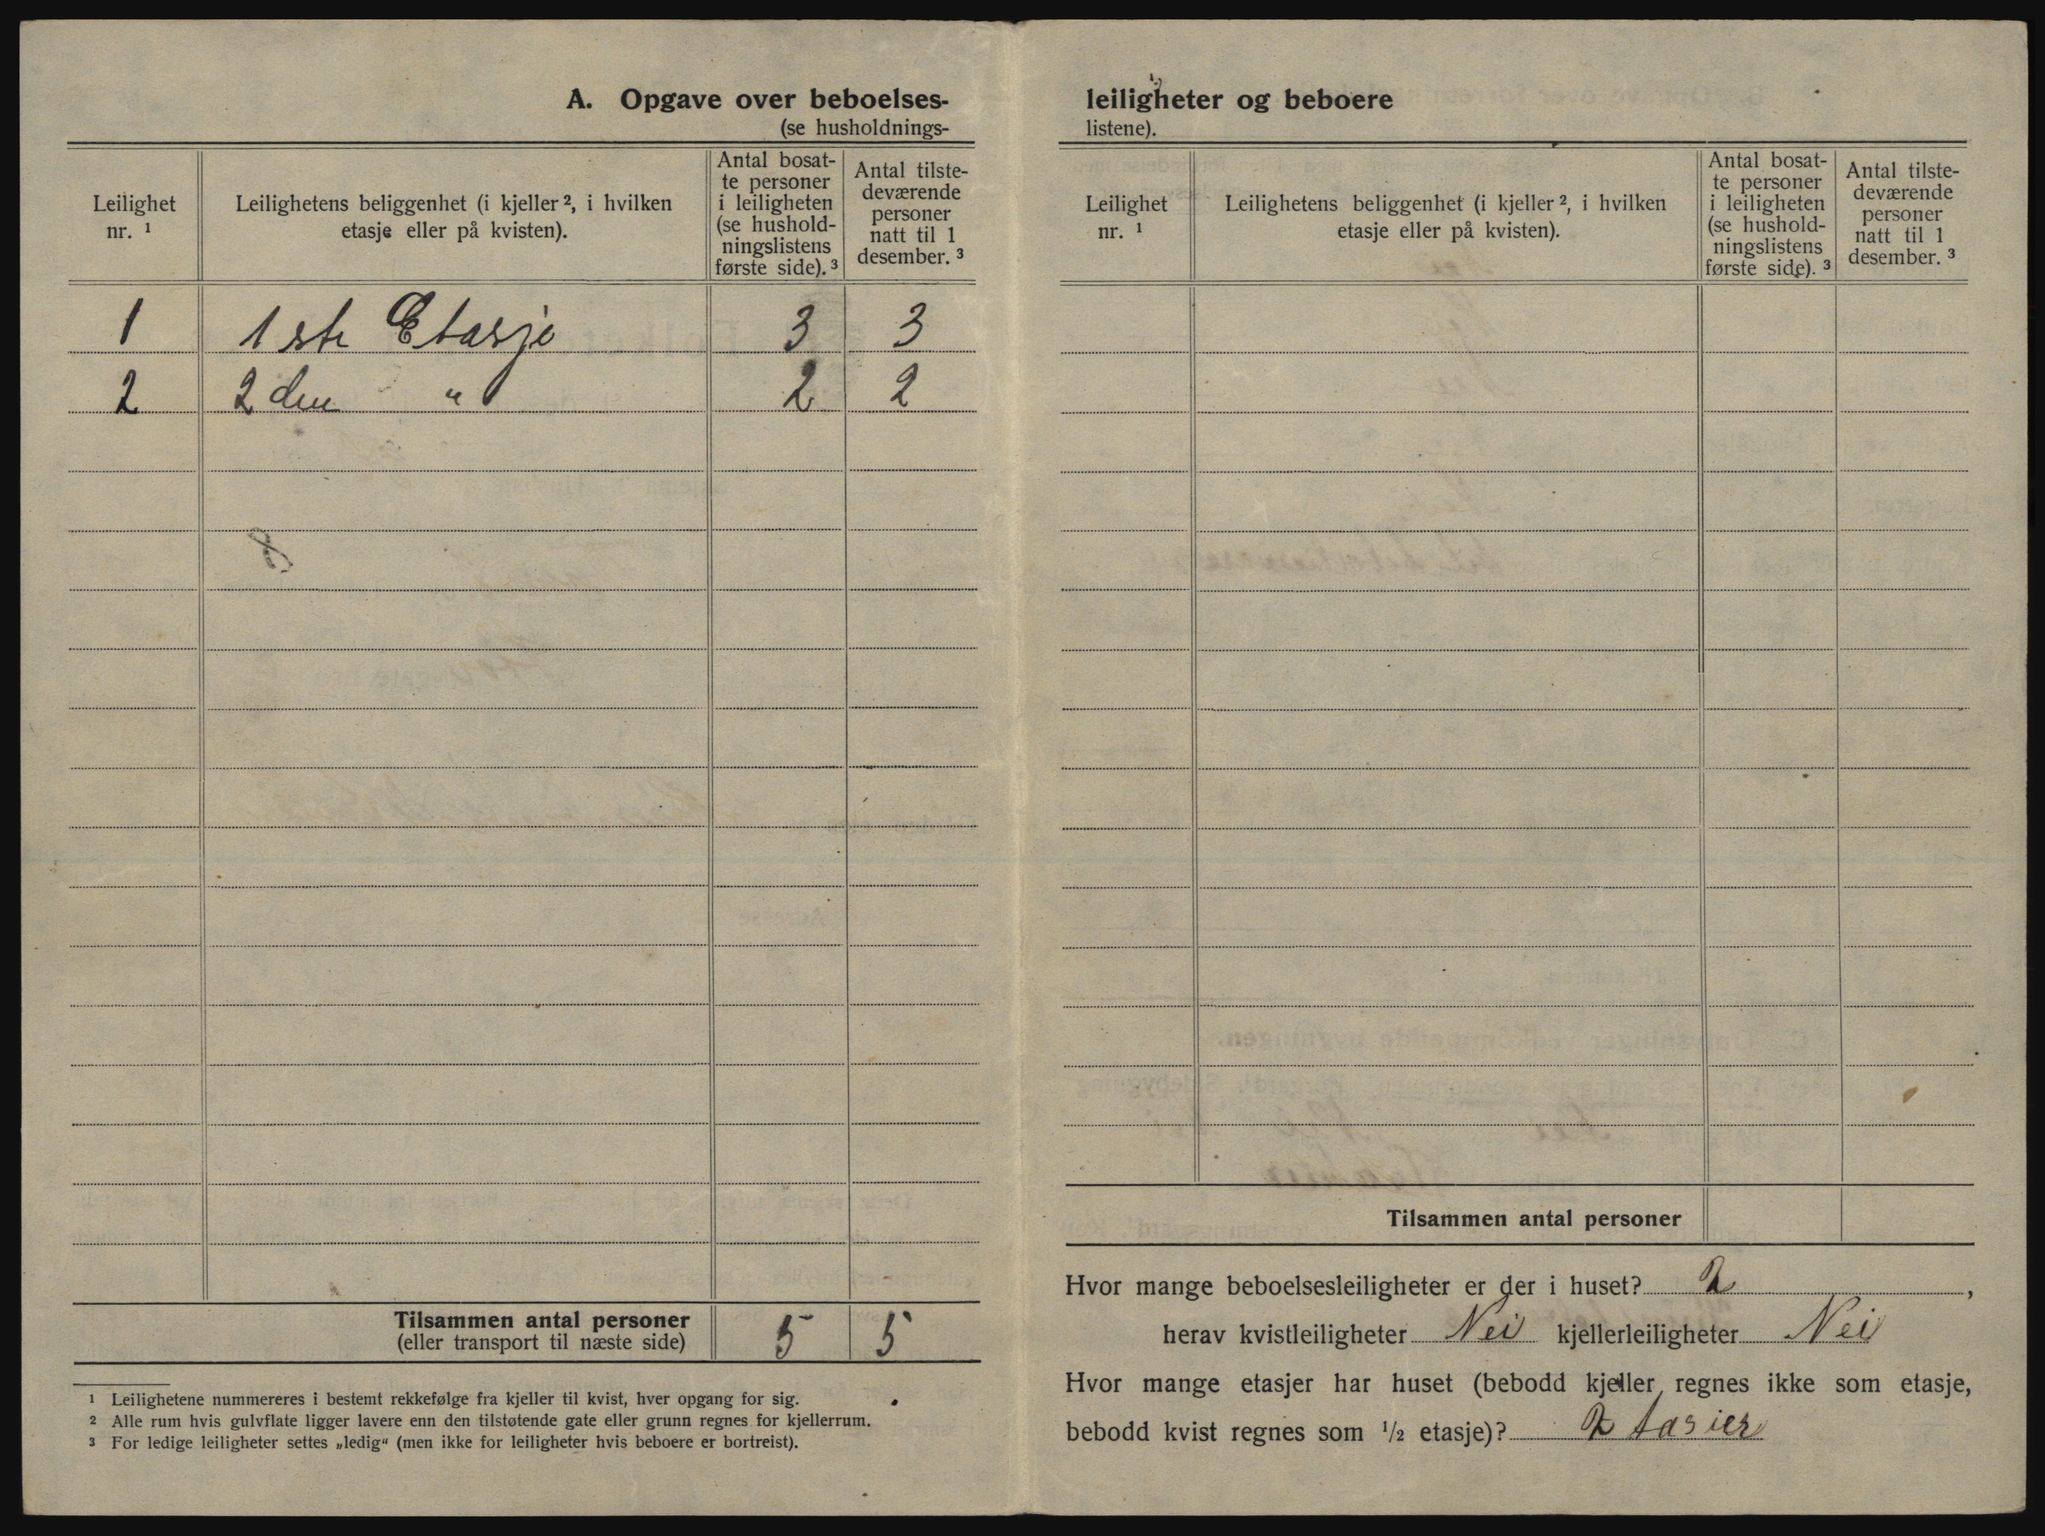 A. Opgave over beboelses-
(se husholdnings-
Leilighet nr. ¹
Leilighetens beliggenhet (i kjeller ², i hvilken
etasje eller på kvisten).
Antal bosat-
te personer
i leiligheten
(se hushold-
ningslistens
første side). ³
Antal tilste-
deværende
personer
natt til 1
desember. ³
1 1ste Etasje 3 3
2 2den " 2 2
Tilsammen antal personer 5 5
(eller transport til næste side)
¹ Leilighetene nummereres i bestemt rekkefølge fra kjeller til kvist, hver opgang for sig.
² Alle rum hvis gulvflate ligger lavere enn den tilstøtende gate eller grunn regnes for kjellerrum.
³ For ledige leiligheter settes „ledig“ (men ikke for leiligheter hvis beboere er bortreist).
leiligheter og beboere
listene).
Leilighet nr. ¹
Leilighetens beliggenhet (i kjeller ², i hvilken
etasje eller på kvisten).
Antal bosat-
te personer
i leiligheten
(se hushold-
ningslistens
første side). ³
Antal tilste-
deværende
personer
natt til 1
desember. ³
Tilsammen antal personer
Hvor mange beboelsesleiligheter er der i huset? 2,
herav kvistleiligheter Nei kjellerleiligheter Nei
Hvor mange etasjer har huset (bebodd kjeller regnes ikke som etasje,
bebodd kvist regnes som ½ etasje)? 2 tasier